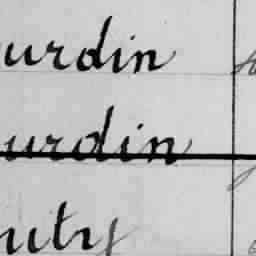 urdin
urdin
uty